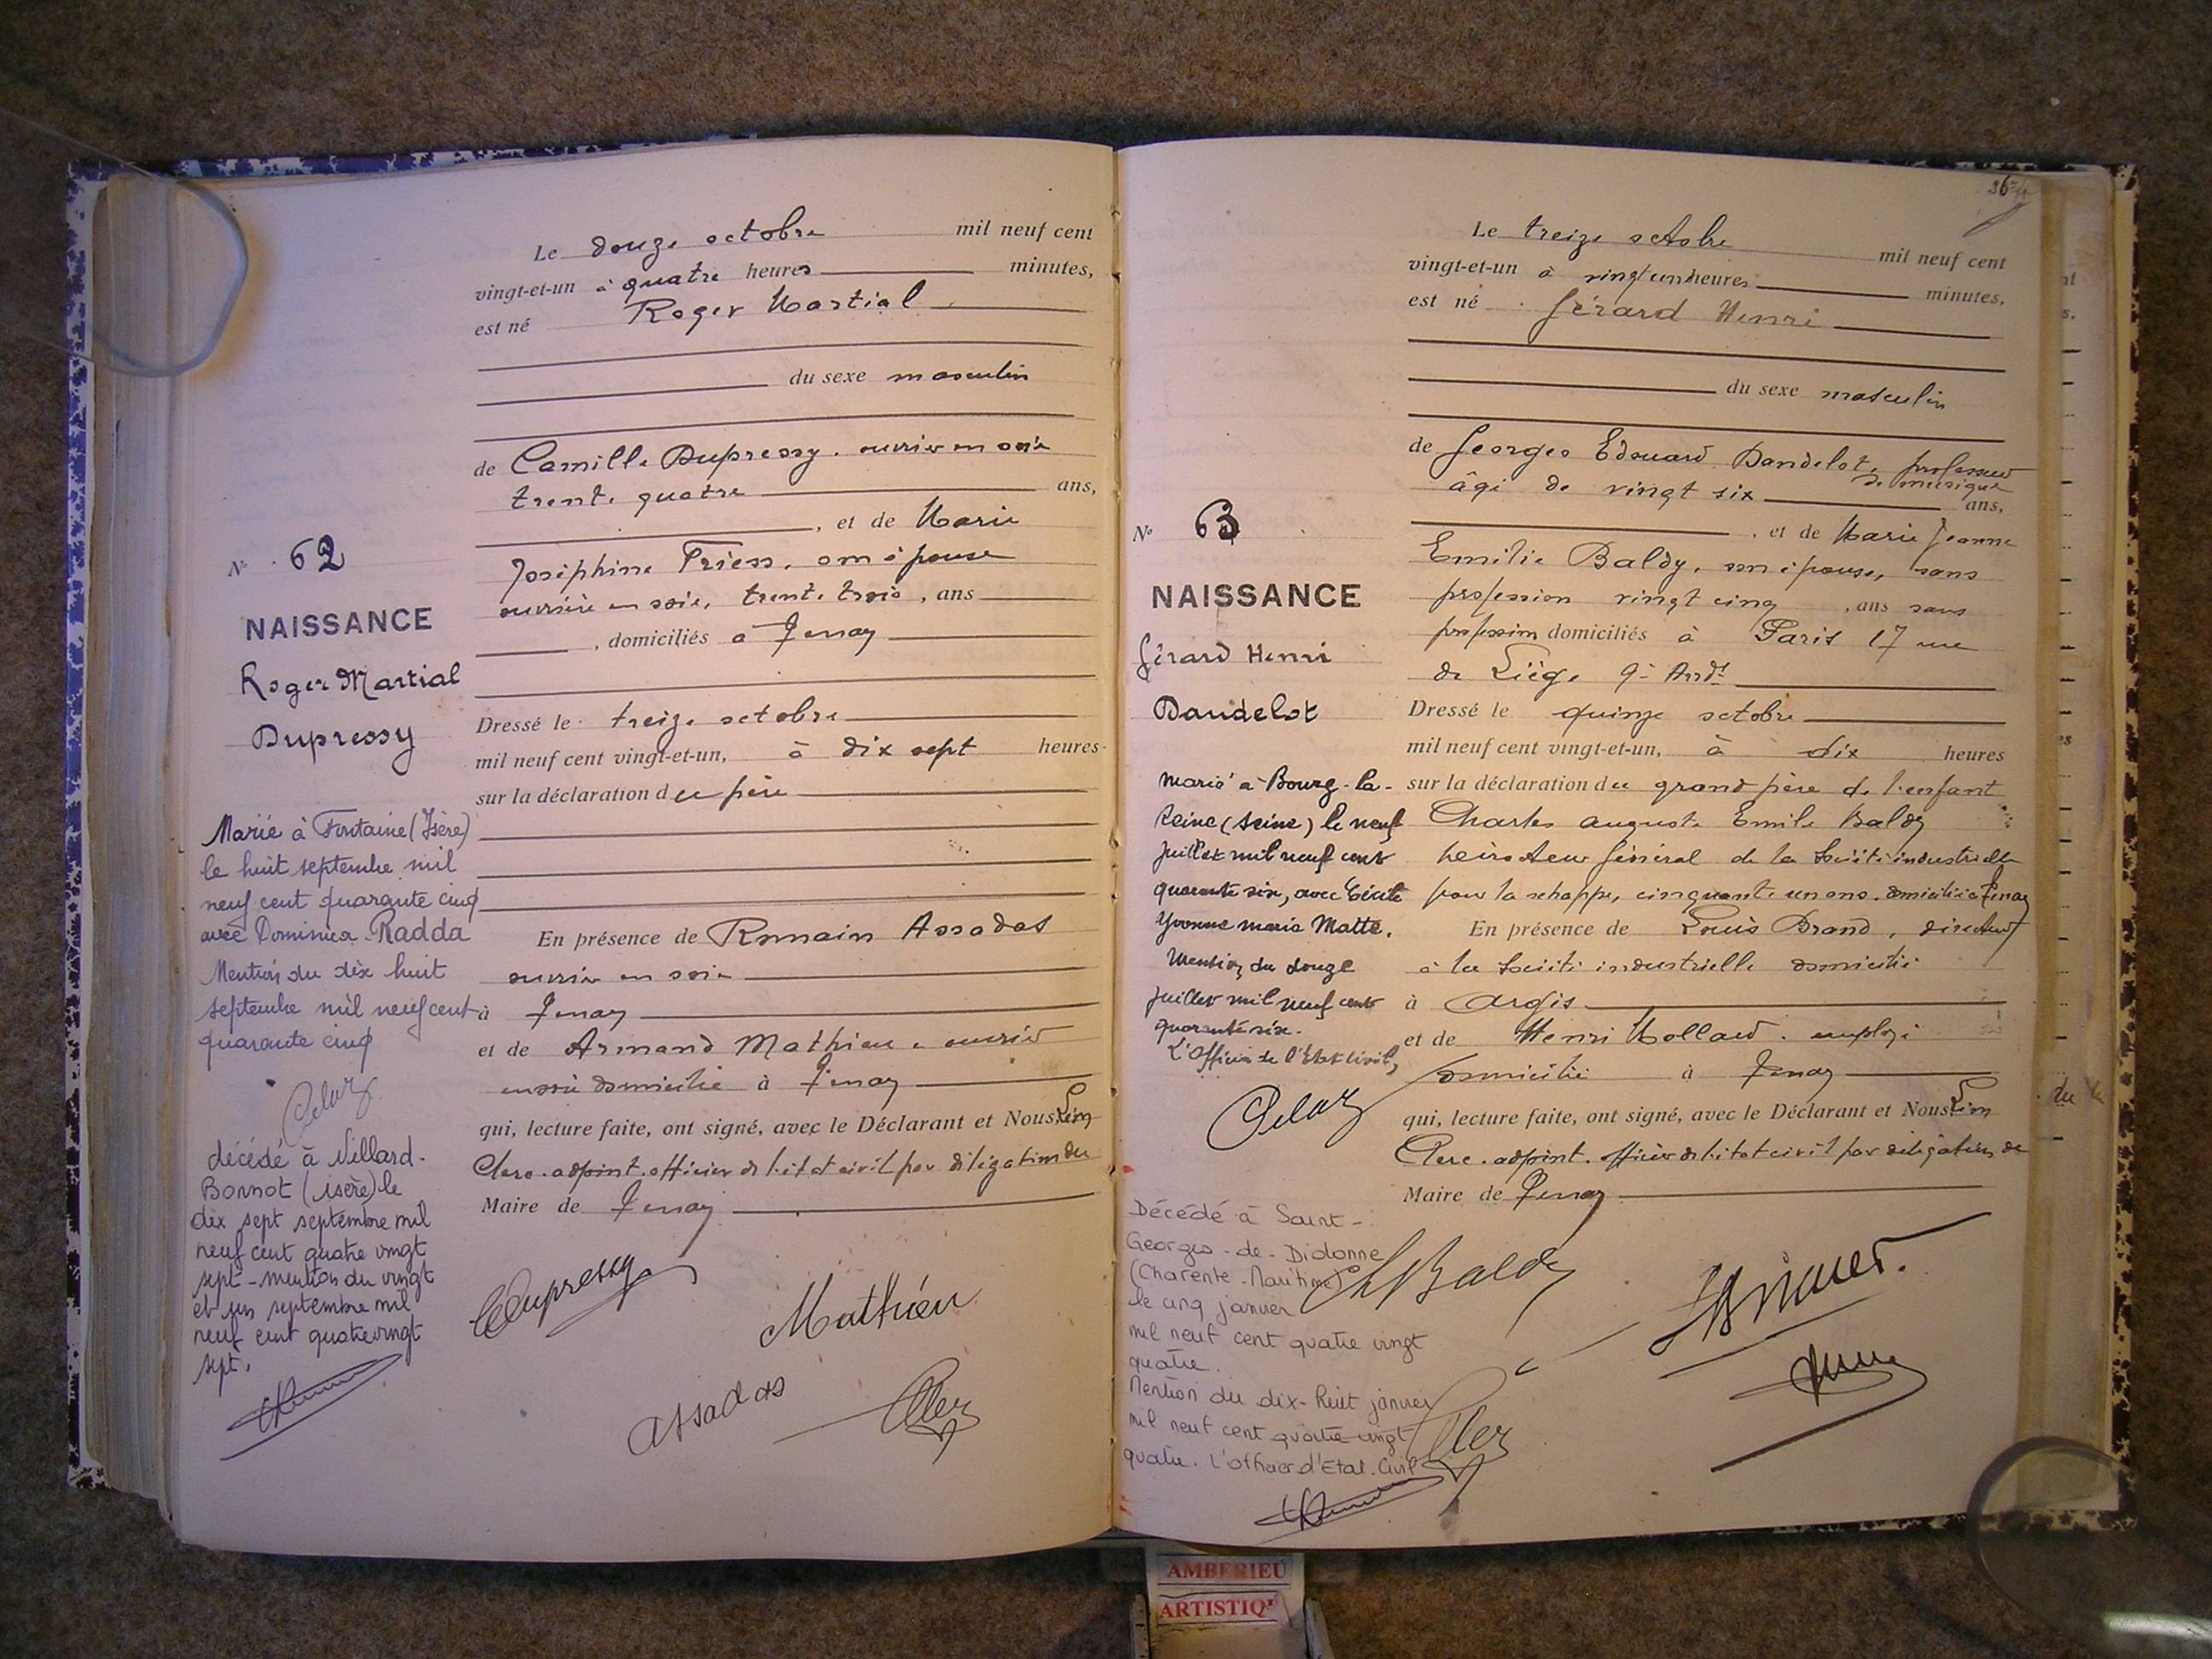 Le douze octobre mil neuf cent
vingt-et-un à quatre heures minutes,
est né Roger Martial
du sexe masculin
de Camille Dupressy, ouvrier en soie
trente quatre ans,
, et de Marie
Joséphine Friess, son épouse
ouvrière en soie, trente trois, ans
, domiciliés à Tenay
Dressé le treize octobre
mil neuf cent vingt-et-un, à dix sept heures
sur la déclaration du père
En présence de Romain Assadas
ouvrier en soie
à Tenay
et de Armand Mathieu, ouvrier
en soie domicilié à Tenay
qui, lecture faite, ont signé, avec le Déclarant et Nous, Léon
Clerc, adjoint, officier de l'état civil par délégation du
Maire de Tenay
CDupressy
Mathieu
Assadas
N° 62
NAISSANCE
Roger Martial
Dupressy
Marié à Fontaine (Isère)
le huit septembre mil
neuf cent quarante cinq
avec Dominica Radda
Mention du dix huit
septembre mil neuf cent
quarante cinq
décédé à Villard-
Bonnot (isère) le
dix sept septembre mil
neuf cent quatre vingt
sept - mention du vingt
et un septembre mil
neuf cent quatrevingt
sept.
Le treize octobre mil neuf cent
vingt-et-un à vingt un heures minutes,
est né Gérard Henri
du sexe masculin
de Georges Edouard Dandelot, professeur
de musique
âgé de vingt six ans,
, et de Marie Jeanne
Emilie Baldy, son épouse, sans
profession vingt cinq, ans sans
profession domiciliés à Paris 17 rue
de Liège 9e Arrdt
Dressé le quinze octobre
mil neuf cent vingt-et-un, à dix heures
sur la déclaration du grand père de l'enfant
Charles Auguste Emile Baldy
Directeur Général de la Société industrielle
pour la schappe, cinquante un ans, domicilié à Tenay
En présence de Louis Brand, directeur
à la Société industrielle domicilié
à Argis
et de Henri Mollard, employé
domicilié à Tenay
qui, lecture faite, ont signé, avec le Déclarant et Nous, Léon
Clerc, adjoint, officier de l'état civil par délégation du
Maire de Tenay
ChBaldy
N° 63
NAISSANCE
Gérard Henri
Dandelot
Marié à Bourg-la-
Reine (Seine) le neuf
juillet mil neuf cent
quarante six, avec Cécile
Yvonne Maria Matte.
Mention du douze
juillet mil neuf cent
quarante six.
L'Officier de l'Etat civil,
Décédé à Saint-
Georges-de-Didonne
(Charente-Maritime)
le cinq janvier
mil neuf cent quatre vingt
quatre.
Mention du dix-huit janvier
mil neuf cent quatre vingt
quatre. L'officier d'Etat-Civil
AMBERIEU
ARTISTIQ